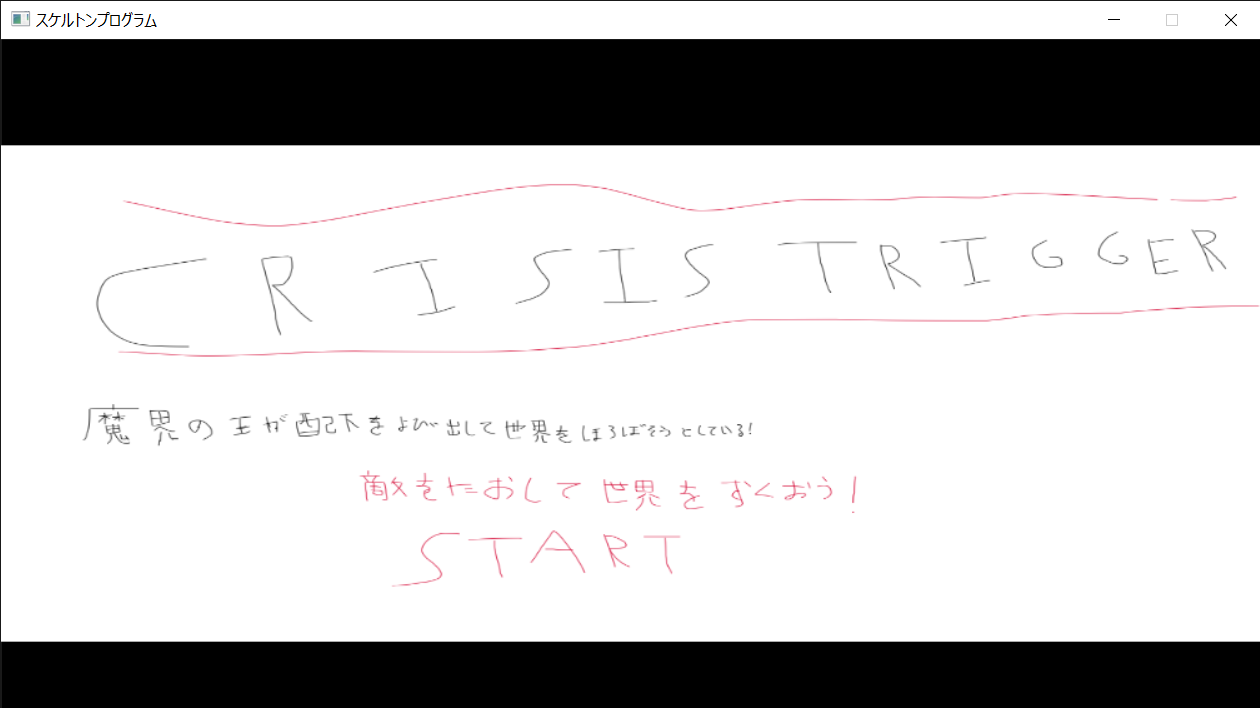 スケルトンプログラム
CRISIS TRIGGER
魔界の王が配下をよび出して世界をほろぼそうとしている!
敵をたおして世界をすくおう!
START